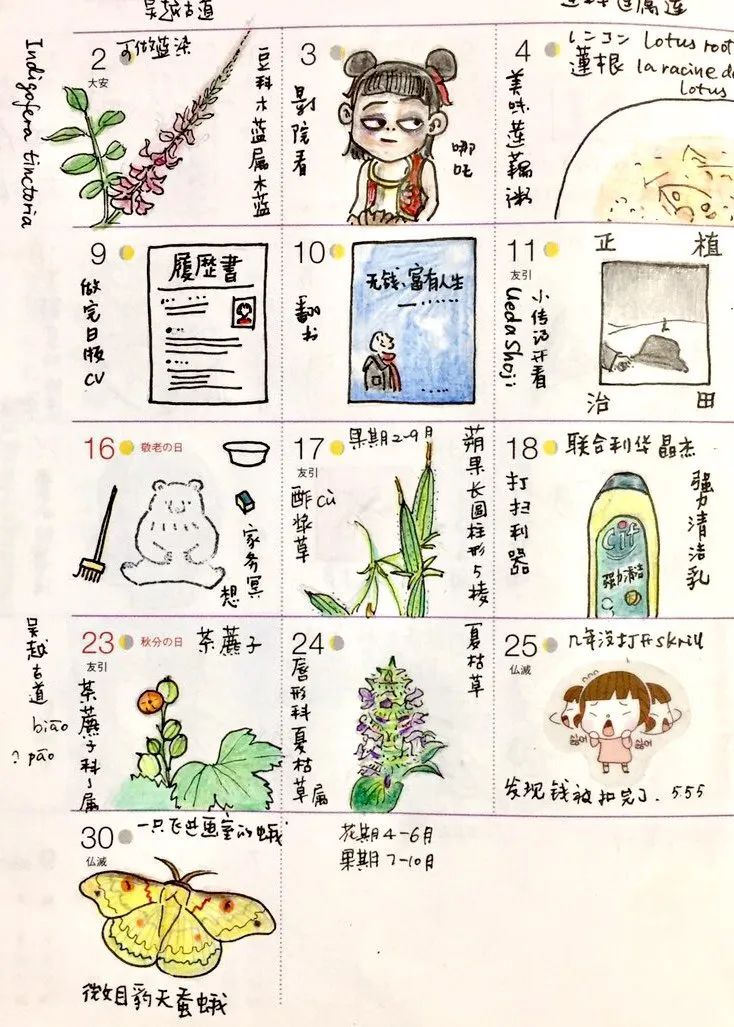 吴越古道
Indigofera tinctoria
2
大安
可做蓝染
豆科木蓝属木蓝
3
影院看
哪吒
4
レンコン Lotus root
蓮根 la racine de
lotus
美味莲藕粥
9
做完日版CV
履歴書
10
翻书
无钱、富有人生
11
友引
Ueda Shoji
小传记开看
正 植
治 田
16
敬老の日
家务冥
想
17
友引
果期2-9月
酢cù
浆草
蒴果长圆柱形5棱
18
联合利华晶杰
打扫利器
强力清洁乳
cif
强力清洁
吴越古道
biāo
? pāo
23
友引
秋分の日
茶藨子
茶藨子科、属
24
唇形科夏枯草属
夏枯草
25
仏滅
几年没打开skrill
싫어
싫어
发现钱被扣完了. 555
30
仏滅
一只飞进画室的蛾
微目豹天蚕蛾
花期4-6月
果期7-10月